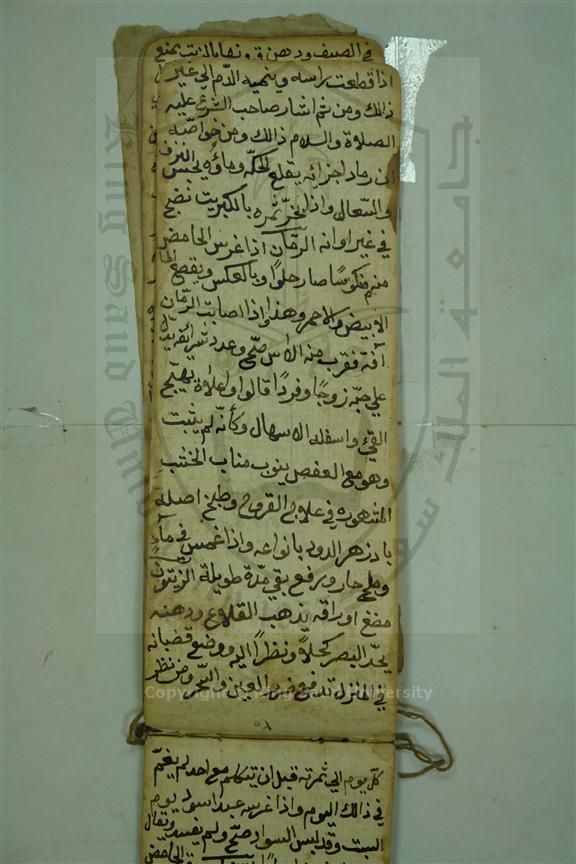 في الصيف ودهن
اذا قطعت راسه وينميه الدم الي غير
ذالك ومن ثم اشار صاحب الشرع عليه
الصلاة والسلام ذالك ومن خواصه
ان رماد اجزائه يقلع الحكه وماؤه يحبس النزف
والسعال واذا بخر ثمره بالكبريت نضج
في غير اوانه الرمان اذا غرس الحامض
منه منكوسا صار حلوا وبالعكس ويقطع
الابيض والاحمر وهذا واذا اصابت الرمان
آفة فقرب منه الاس صح وعدد
علي حبه زوجا وفردا قالوا واعلاه يهيج
القيء واسفله الاسهال وكأنه لم يثبت
وهو مع العفص ينوب مناب الخشب
المشهوره في علاج القروح وطبخ اصله
بادزهر الدود بانواعه واذا غمس في ماء
وملح حار ورفع بقي مدة طويلة الزيتون
مضغ اوراقه يذهب القلاع ودهنه
يحد البصر كحلا ونظرا اليه ووضع قضبانه
في المنزل تدفع ضرر العين والسحر ومن نظر
كل يوم الي ثمرته قبل ان يتكلم مع احد لم يغتم
في ذالك اليوم واذا غرسه عبد اسود يوم
السبت وقد لبس السواد صح ولم يفسد ويقال
جامعة الملك سعود
King Saud University
Copyright © King Saud University